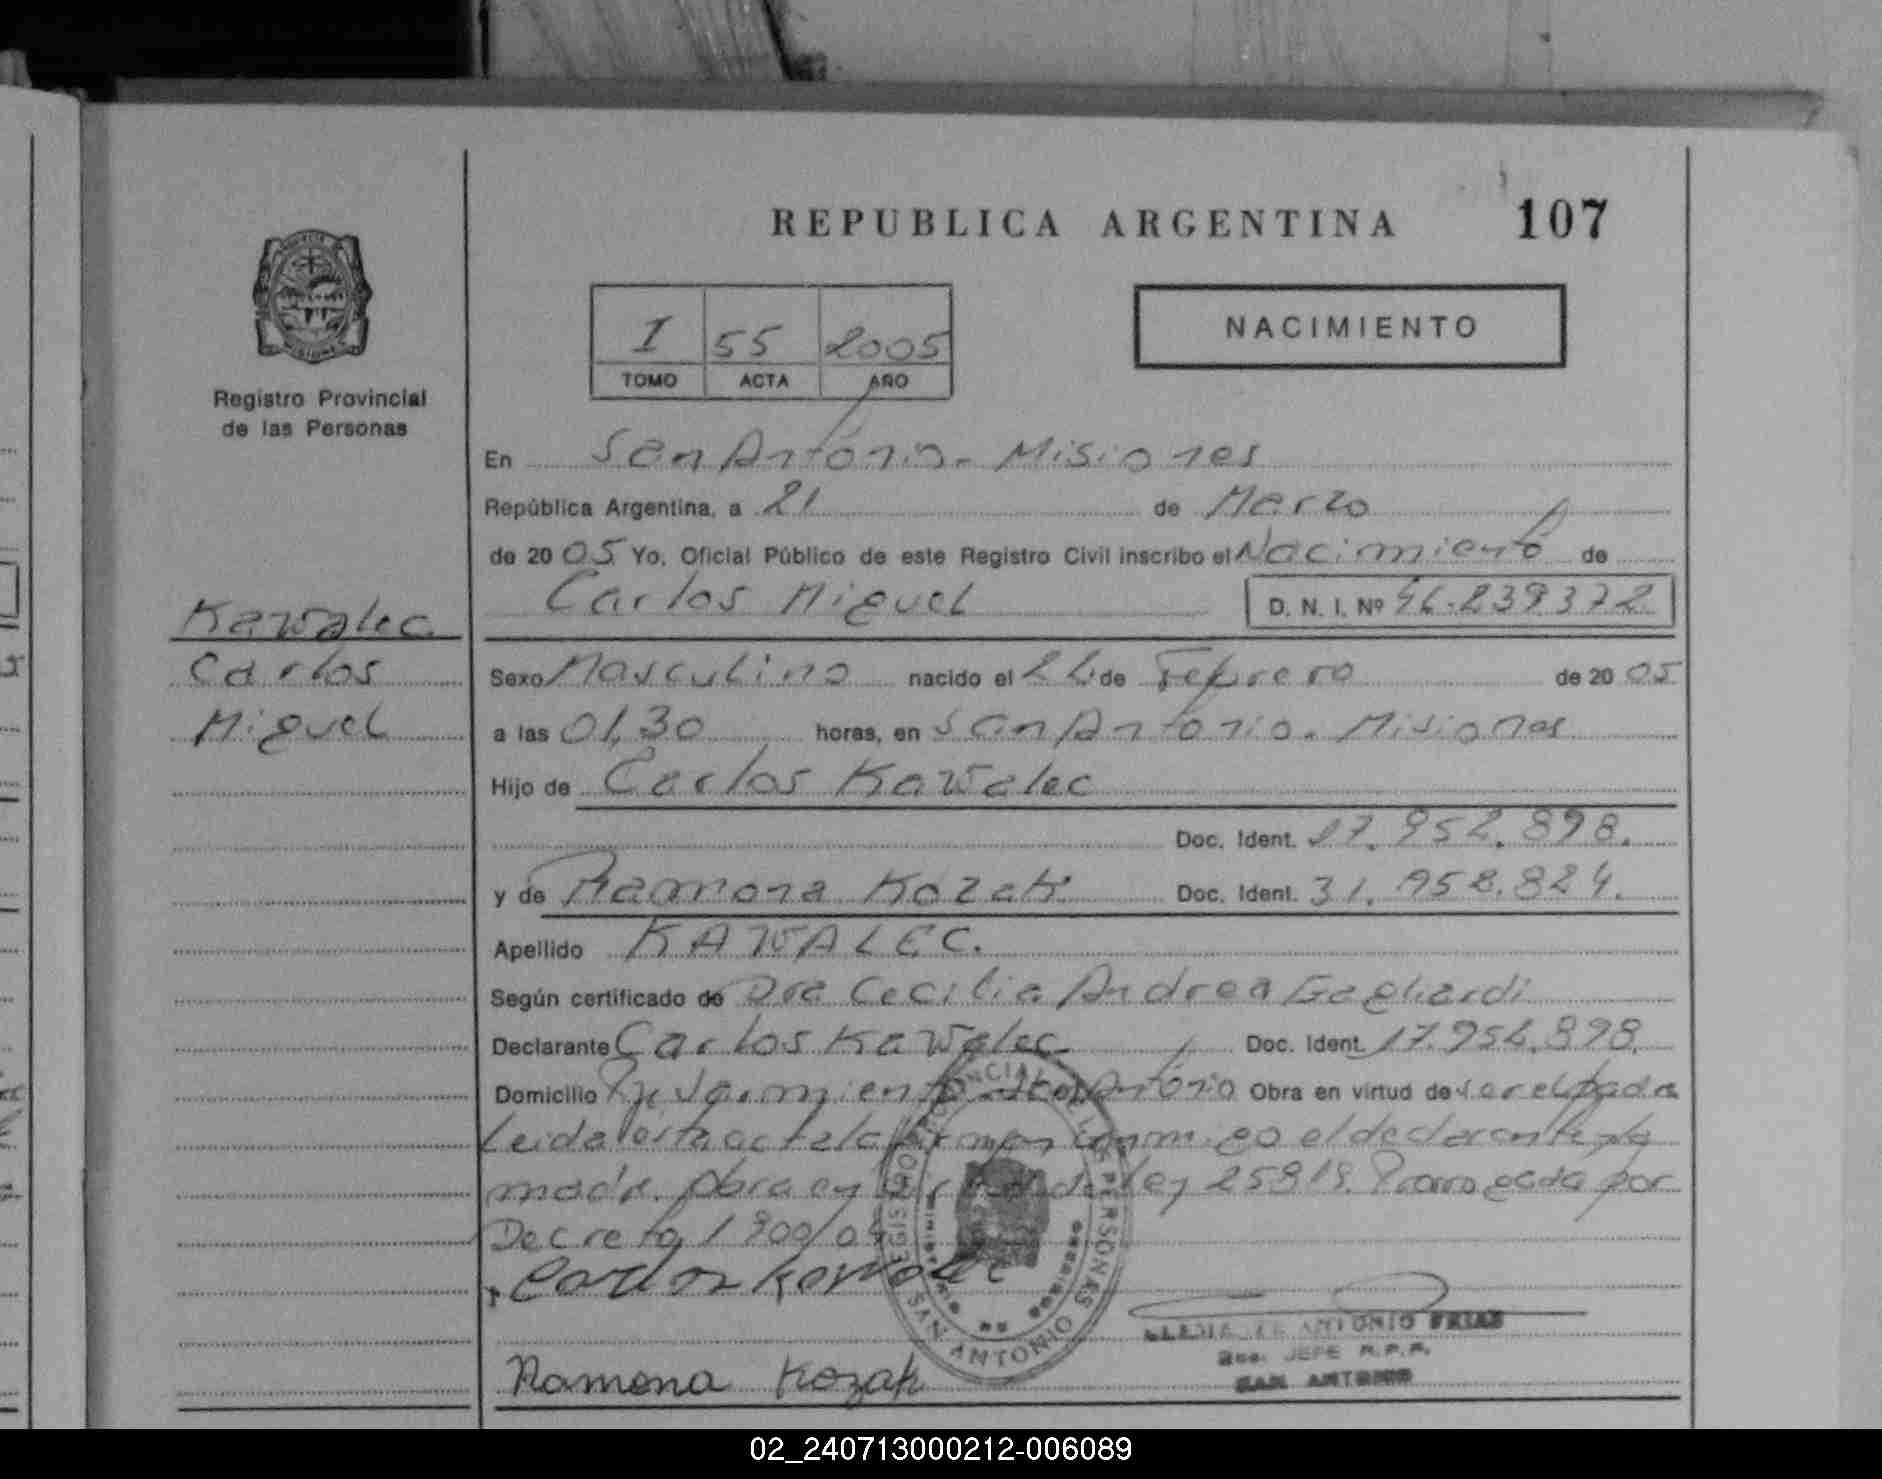 REPUBLICA ARGENTINA 107
I 55 2005
TOMO ACTA AÑO
NACIMIENTO
Registro Provincial
de las Personas
En San Antonio - Misiones
República Argentina, a 21 de Marzo
de 20 05 Yo, Oficial Público de este Registro Civil inscribo el Nacimiento de
Carlos Miguel D. N. I. Nº
Kawalec
Carlos
Miguel
Sexo Masculino nacido el de Febrero de 20 05
a las 01,30 horas, en San Antonio - Misiones
Hijo de Carlos Kawalec
Doc. Ident. 17.952.898.
y de Ramona Kozak Doc. Ident. 31.
Apellido KAWALEC.
Según certificado de Dra Cecilia Andrea Gagliardi
Declarante Carlos Kawalec Doc. Ident. 17.952.898.
Domicilio San Antonio Obra en virtud de ser el padre
Leida esta acta la firman conmigo el declarante y la
madre. Obra en virtud de ley 25819. Prorrogada por
Decreto 1900/04
Carlos Kawalec
Ramona Kozak
REGISTRO PROVINCIAL DE LAS PERSONAS
SAN ANTONIO
ANTONIO FRIAS
JEFE R.P.P.
SAN ANTONIO
02_240713000212-006089